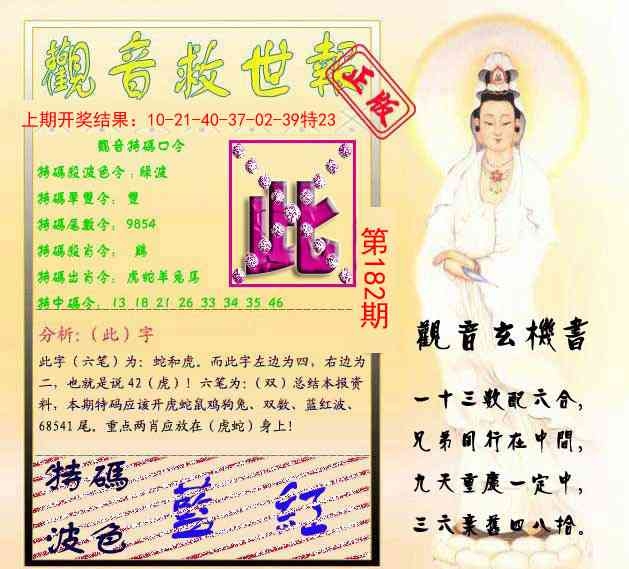 觀音救世報
正版
上期开奖结果：10-21-40-37-02-39特23
觀音特碼口令
特碼殺波色令：綠波
特碼單雙令： 雙
特碼尾數令： 9854
特碼殺肖令： 鷄
特碼出肖令： 虎蛇羊兔馬
特中碼令： 13 18 21 26 33 34 35 46
此
第182期
分析:（此）字
此字（六笔）为：蛇和虎。而此字左边为四，右边为
二，也就是说 42（虎）！六笔为：（双）总结本报资
料，本期特码应该开虎蛇鼠鸡狗兔、双数、蓝红波、
68541 尾。重点两肖应放在（虎蛇）身上！
特碼
波色
藍 紅
觀音玄機書
一十三數配六合，
兄弟同行在中間，
九天重慶一定中，
三六棄舊四八拾。